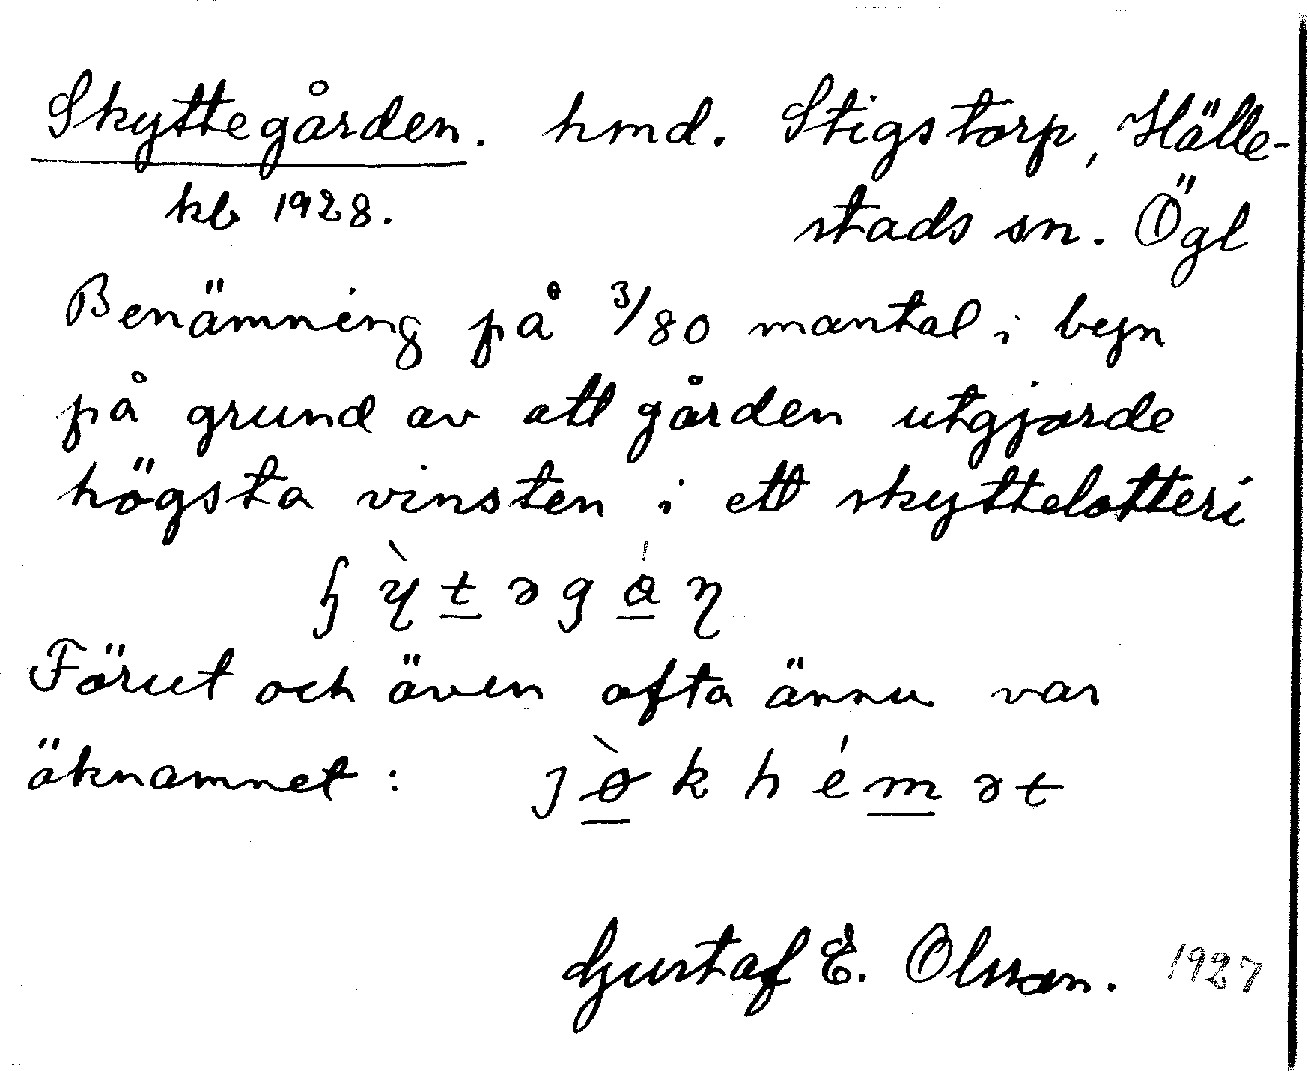 Skyttegården. hmd. Stigstorp, Hälle-
kb 1928. stads sn. Ögl
Benämning på 3/80 mantal i byn
på grund av att gården utgjorde
högsta vinsten i ett skyttelotteri
Förut och även ofta ännu var
öknamnet:
Gustaf E. Olsson. 1927